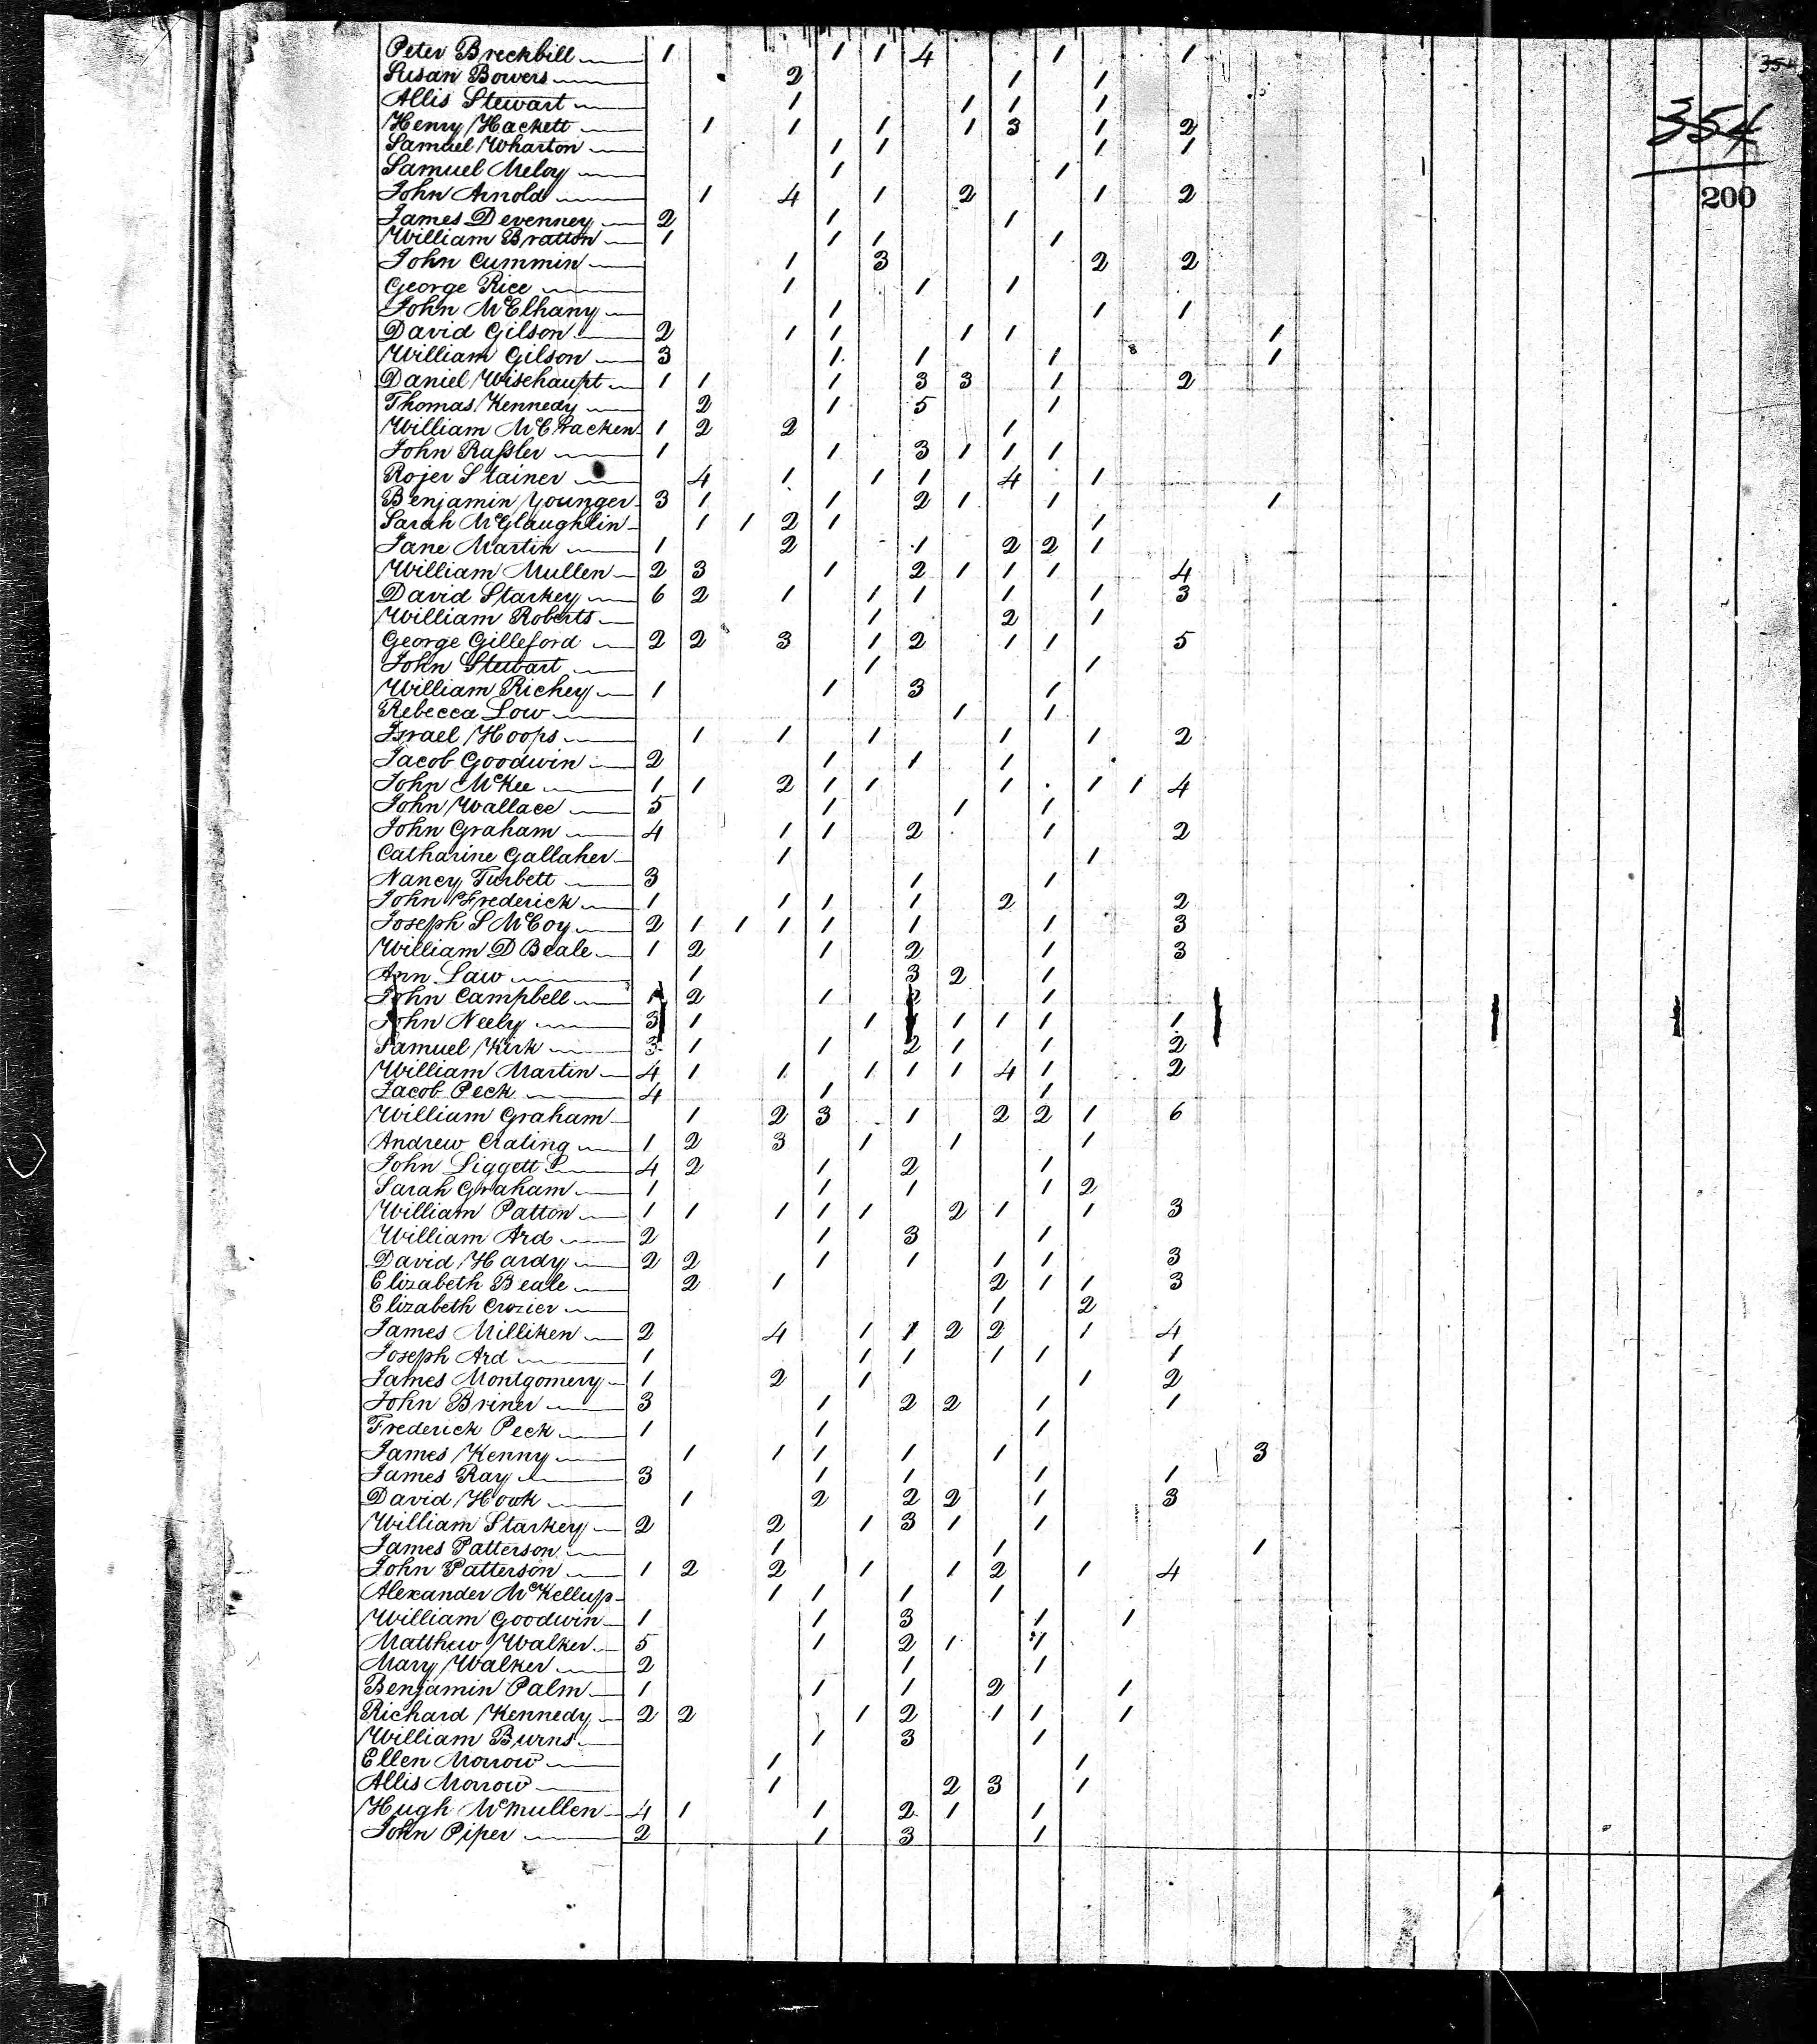 354
354
200
Peter Brechbill 1 1 1 4 1 1
Susan Bowers 2 1 1
Allis Stewart 1 1 1 1
Henry Hackett 1 1 1 1 3 1 2
Samuel Wharton 1 1 1 1
Samuel Meloy 1 1
John Arnold 1 4 1 2 1 2
James Devenney 2 1 1
William Bratton 1 1 1 1
John Cummin 1 3 2 2
George Rice 1 1 1
John McElhany 1 1 1
David Gilson 2 1 1 1 1 1
William Gilson 3 1 1 1 1
Daniel Wisehaupt 1 1 1 3 3 1 2
Thomas Kennedy 2 1 5 1
William McCracken 1 2 2 1
John Raſsler 1 1 3 1 1 1
Rojer Stainer 4 1 1 1 4 1
Benjamin Younger 3 1 1 2 1 1 1
Sarah McGlaughlin 1 1 2 1 1
Jane Martin 1 2 1 2 2 1
William Mullen 2 3 1 2 1 1 1 4
David Starkey 6 2 1 1 1 1 1 3
William Roberts 1 2 1
George Gilleford 2 2 3 1 2 1 1 5
John Stewart 1 1
William Richey 1 1 3 1
Rebecca Low 1 1
Israel Hoops 1 1 1 1 1 2
Jacob Goodwin 2 1 1 1
John McKee 1 1 2 1 1 1 1 1 4
John Wallace 5 1 1 1
John Graham 4 1 1 2 1 2
Catharine Gallaher 1 1
Nancy Turbett 3 1 1
John Frederick 1 1 1 1 2 2
Joseph S McCoy 2 1 1 1 1 1 1 3
William D Beale 1 2 1 2 1 3
Ann Law 1 3 2 1
John Campbell 1 2 1 2 1
John Neely 3 1 1 1 1 1 1 1
Samuel Kirk 3 1 1 2 1 1 2
William Martin 4 1 1 1 1 1 4 1 2
Jacob Peck 4 1 1
William Graham 1 2 3 1 2 2 1 6
Andrew Crating 1 2 3 1 1 1
John Liggett 4 2 1 2 1
Sarah Graham 1 1 1 1 2
William Patton 1 1 1 1 1 2 1 1 3
William Ard 2 1 3 1
David Hardy 2 2 1 1 1 1 3
Elizabeth Beale 2 1 2 1 1 3
Elizabeth Crozier 1 2
James Milliken 2 4 1 1 2 2 1 4
Joseph Ard 1 1 1 1 1 1
James Montgomery 1 2 1 1 2
John Briner 3 1 2 2 1 1
Frederick Peck 1 1 1
James Kenny 1 1 1 1 1 3
James Ray 3 1 1 1 1
David Hook 1 2 2 2 1 3
William Starkey 2 2 1 3 1 1
James Patterson 1 1 1
John Patterson 1 2 2 1 1 2 1 4
Alexander McKellup 1 1 1 1
William Goodwin 1 1 3 1 1
Matthew Walker 5 1 2 1 1
Mary Walker 2 1 1
Benjamin Palm 1 1 1 2 1
Richard Kennedy 2 2 1 2 1 1 1
William Burns 1 3 1
Ellen Morrow 1 1
Allis Morrow 1 2 3 1
Hugh McMullen 4 1 1 2 1 1
John Piper 2 1 3 1